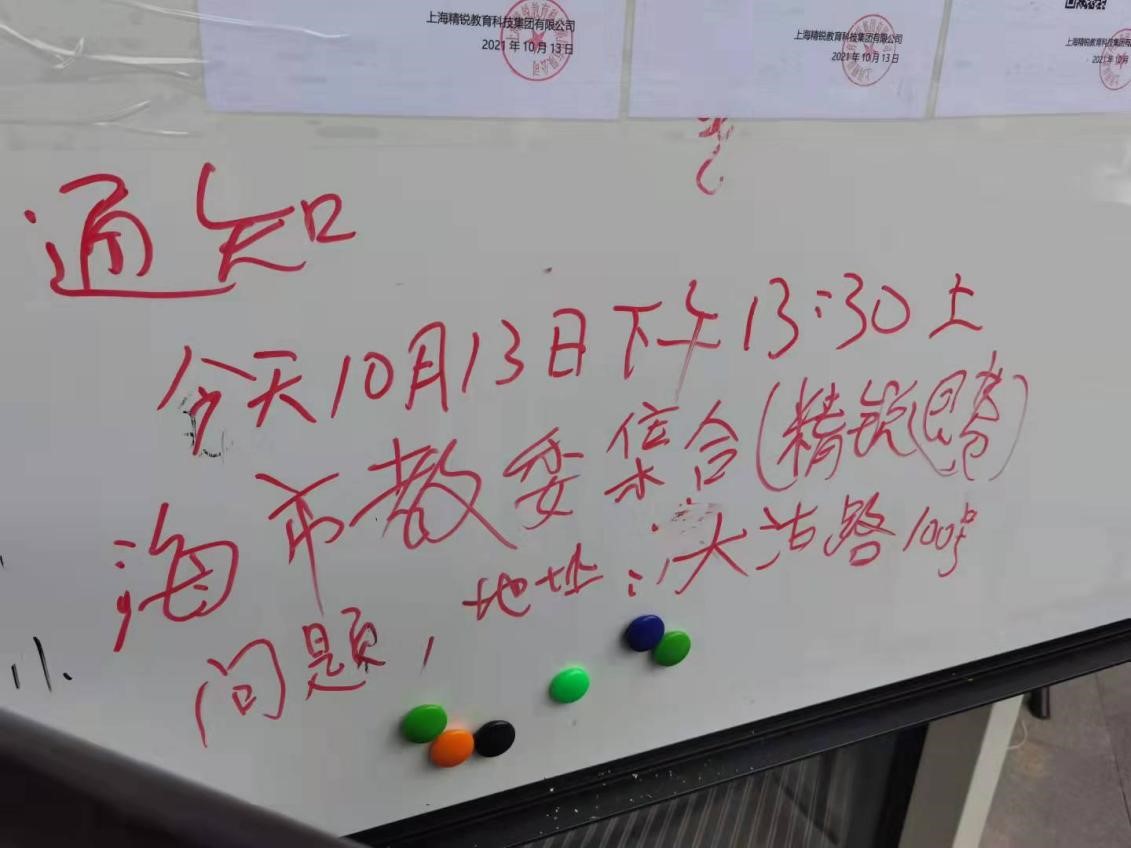 上海精锐教育科技集团有限公司
2021年10月13日
上海精锐教育科技集团有限公司
2021年10月13日
上海精锐教育科技集团有限
2021年10月
通知
今天10月13日下午13:30上
海市教委集合(精锐
问题,地址:大沽路100号
11.